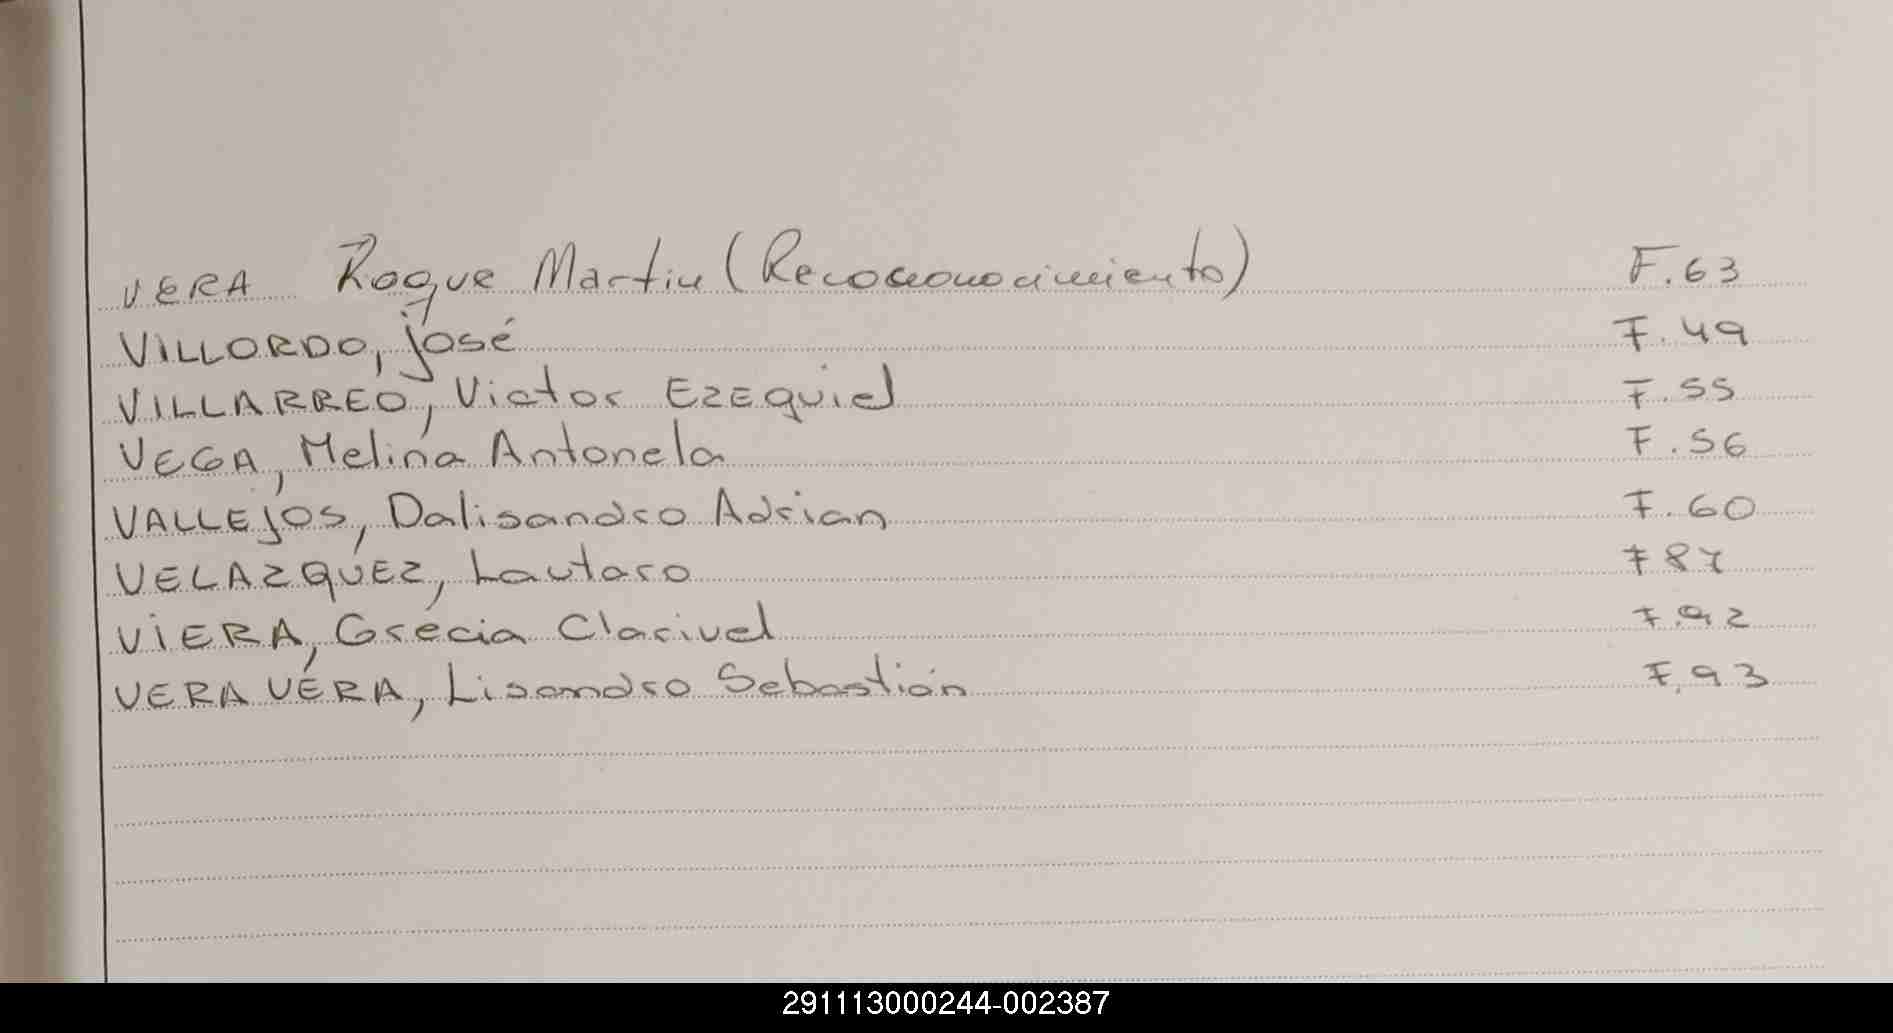 VERA Roque Martin (Recoconocimiento) F.63
VILLORDO, José F.49
VILLARREO, Victor EZEquiel F.55
VEGA, Melina Antonela F.56
VALLEJOS, Dalisandro Adrian F.60
VELAZQUEZ, Lautaro F 87
VIERA, Grecia Clarivel F.92
VERA VERA, Lisandro Sebastián F.93
291113000244-002387